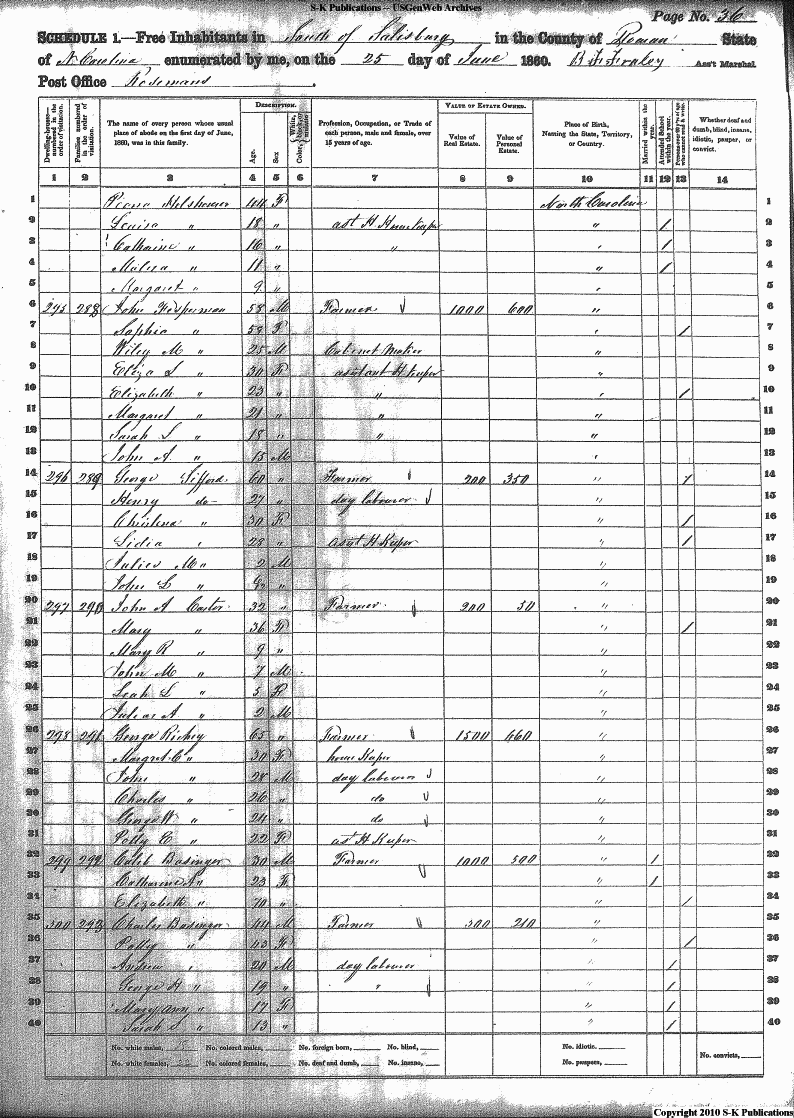 S-K Publications -- USGenWeb Archives
Page No. 36
SCHEDULE 1.—Free Inhabitants in South of Salisbury in the County of Rowan State
of N Carolina enumerated by me, on the 25 day of June 1860. Ass't Marshal
Post Office
Dwelling-houses—numbered in the order of visitation.
Families numbered in the order of visitation.
The name of every person whose usual place of abode on the first day of June, 1860, was in this family.
DESCRIPTION.
Age.
Sex
White, black, or mulatto
Color
Profession, Occupation, or Trade of each person, male and female, over 15 years of age.
VALUE OF ESTATE OWNED.
Value of Real Estate.
Value of Personal Estate.
Place of Birth, Naming the State, Territory, or Country.
Married within the year.
Attended School within the year.
Persons over 20 y'rs of age who cannot read & write.
Whether deaf and dumb, blind, insane, idiotic, pauper, or convict.
1 2 3 4 5 6 7 8 9 10 11 12 13 14
1 44 F North Carolina 1
2 Louisa " 18 " ast H Housekeeper " / 2
3 Catharine " 16 " " " / 3
4 " 11 " " / 4
5 Margaret " 9 " " 5
6 295 288 John Kesperman 58 M Farmer 1000 600 " 6
7 Sophia " 58 F " / 7
8 Wiley M " 25 M Cabinet Maker " 8
9 Eliza L " 30 F asistant H Keeper " 9
10 Elizabeth " 23 " " " / 10
11 Margaret " 21 " " " 11
12 Sarah S " 18 " " " 12
13 John A " 15 M " 13
14 296 289 George Sifford 60 " Farmer 200 350 " / 14
15 Henry do 27 " day labourer " 15
16 Christina " 30 F " / 16
17 Lidia " 28 " asst H Keeper " / 17
18 Julies M " 2 M " 18
19 John L " " " 19
20 297 290 John A Castor 32 " Farmer 200 50 " 20
21 Mary " 36 F " / 21
22 Mary R " 9 " " 22
23 John M " 7 M " 23
24 Leah L " 5 F " 24
25 Julius A " 2 M " 25
26 298 291 George Richey 65 " Farmer 1500 460 " 26
27 Margret C " 30 F house Keeper " 27
28 John " 28 M day labourer " 28
29 Charles " 26 " do " 29
30 George W " 24 " do " 30
31 Polly C " 22 F ast H Keeper " 31
32 299 292 Caleb Basinger 30 M Farmer 1000 500 " / 32
33 Catharine " 23 F " / 33
34 Elizabeth " 70 " " / 34
35 300 293 Charles Basinger 44 M Farmer 300 210 " 35
36 Polly " 43 F " / 36
37 Andrew " 20 M day labourer " / 37
38 George H " 19 " " " / 38
39 Mary Ann " 17 F " / 39
40 Sarah S " 13 " " / 40
No. white males, No. colored males, No. foreign born, No. blind, No. idiotic,
No. white females, No. colored females, No. deaf and dumb, No. insane, No. paupers, No. convicts,
Copyright 2010 S-K Publications